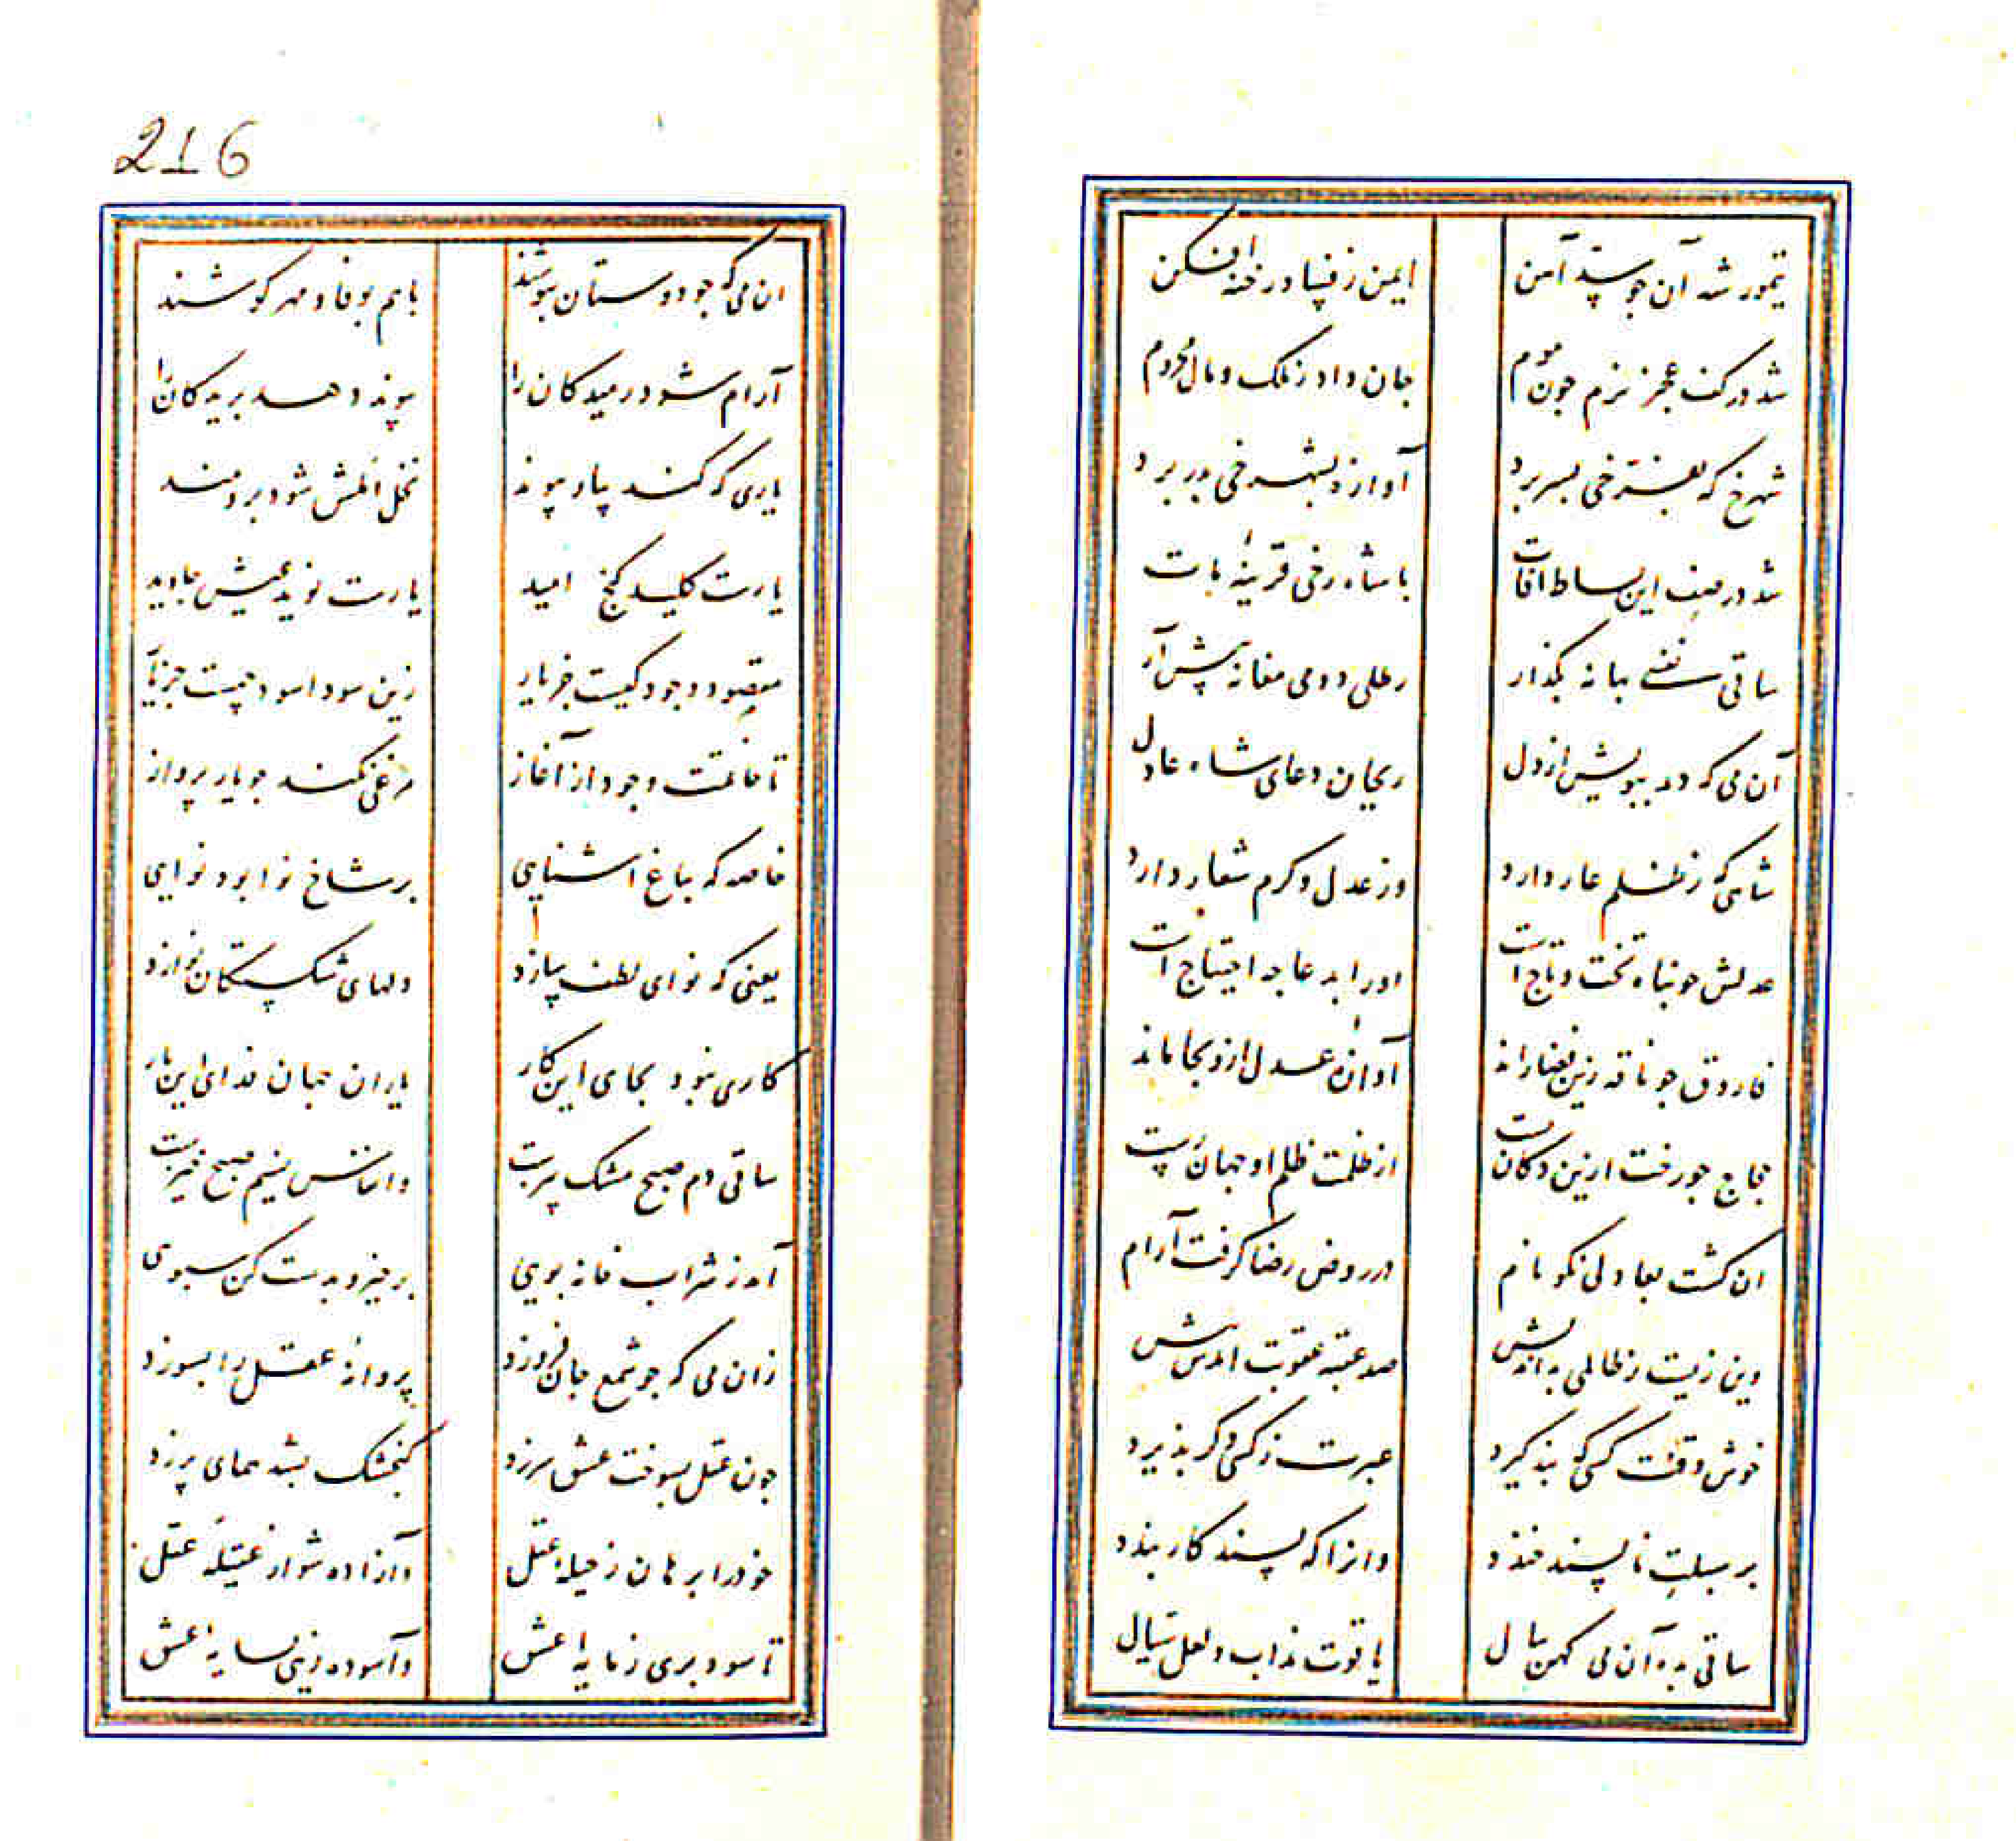 تیمور شد آن چو سد آهن ایمن ز فساد رخنه افکن
شد در کف عجز نرم چون موم جان داد ز ملک و مال محروم
شهرخ که بعشرخی بسر برد آوازه بشهرخی بدر برد
شد در صف این بساط آفات با شاه رخی قرینه مات
ساقی سخن بهانه بگذار رطلی دو می مغانه پیش آر
آن می که دمد ببویش از دل ریحان دعای شاه عادل
شاهی که ز ظلم عار دارد وز عدل و کرم شعار دارد
عدلش چو پناه تخت و تاج است او را به دعا چه احتیاج است
فاروق چو ناقه زین فضا راند آوازه عدل ازو بجا ماند
حجاج چو رخت ازین دکان بست از ظلمت ظلم او جهان رست
آن گشت بعادلی نکو نام در روض رضا گرفت آرام
وین زیست ز ظالمی بداندیش صد عقبه عقوبت آمدش پیش
خوش وقت کسی که پند گیرد عبرت ز کسی دگر پذیرد
بر سبلت ناپسند خندد وانرا که پسند کار بندد
ساقی بده آن می کهن سال یاقوت مذاب و لعل سیال
216
آن می که چو دوستان بنوشند باهم بوفا و مهر کوشند
آرام شود رمیدگان را پیوند دهد بریدگان را
یاری که کند بیار پیوند نخل املش شود برومند
یارست کلید گنج امید یارست نوید عیش جاوید
مقصود وجود کیست جز یار زین سود و سود چیست جز یار
تا خاست وجود از آغاز مرغی نکند چو یار پرواز
خاصه که بباغ آشنایی بر شاخ نوا بود نوایی
یعنی که نوای لطف سازد دلهای شکستگان نوازد
کاری نبود بجای این کار یاران جهان فدای این یار
ساقی دم صبح مشک بیزست وانفاس نسیم صبح خیزست
آمد ز شراب خانه بویی برخیز و بدست کن سبویی
زان می که چو شمع جان فروزد پروانه عقل را بسوزد
چون عقل بسوخت عشق سر زد گنجشک بشد همای پر زد
خود را برهان ز حیله عقل وآزاده شو از عقیله عقل
تا سود بری ز مایه عشق وآسوده زیی بسایه عشق